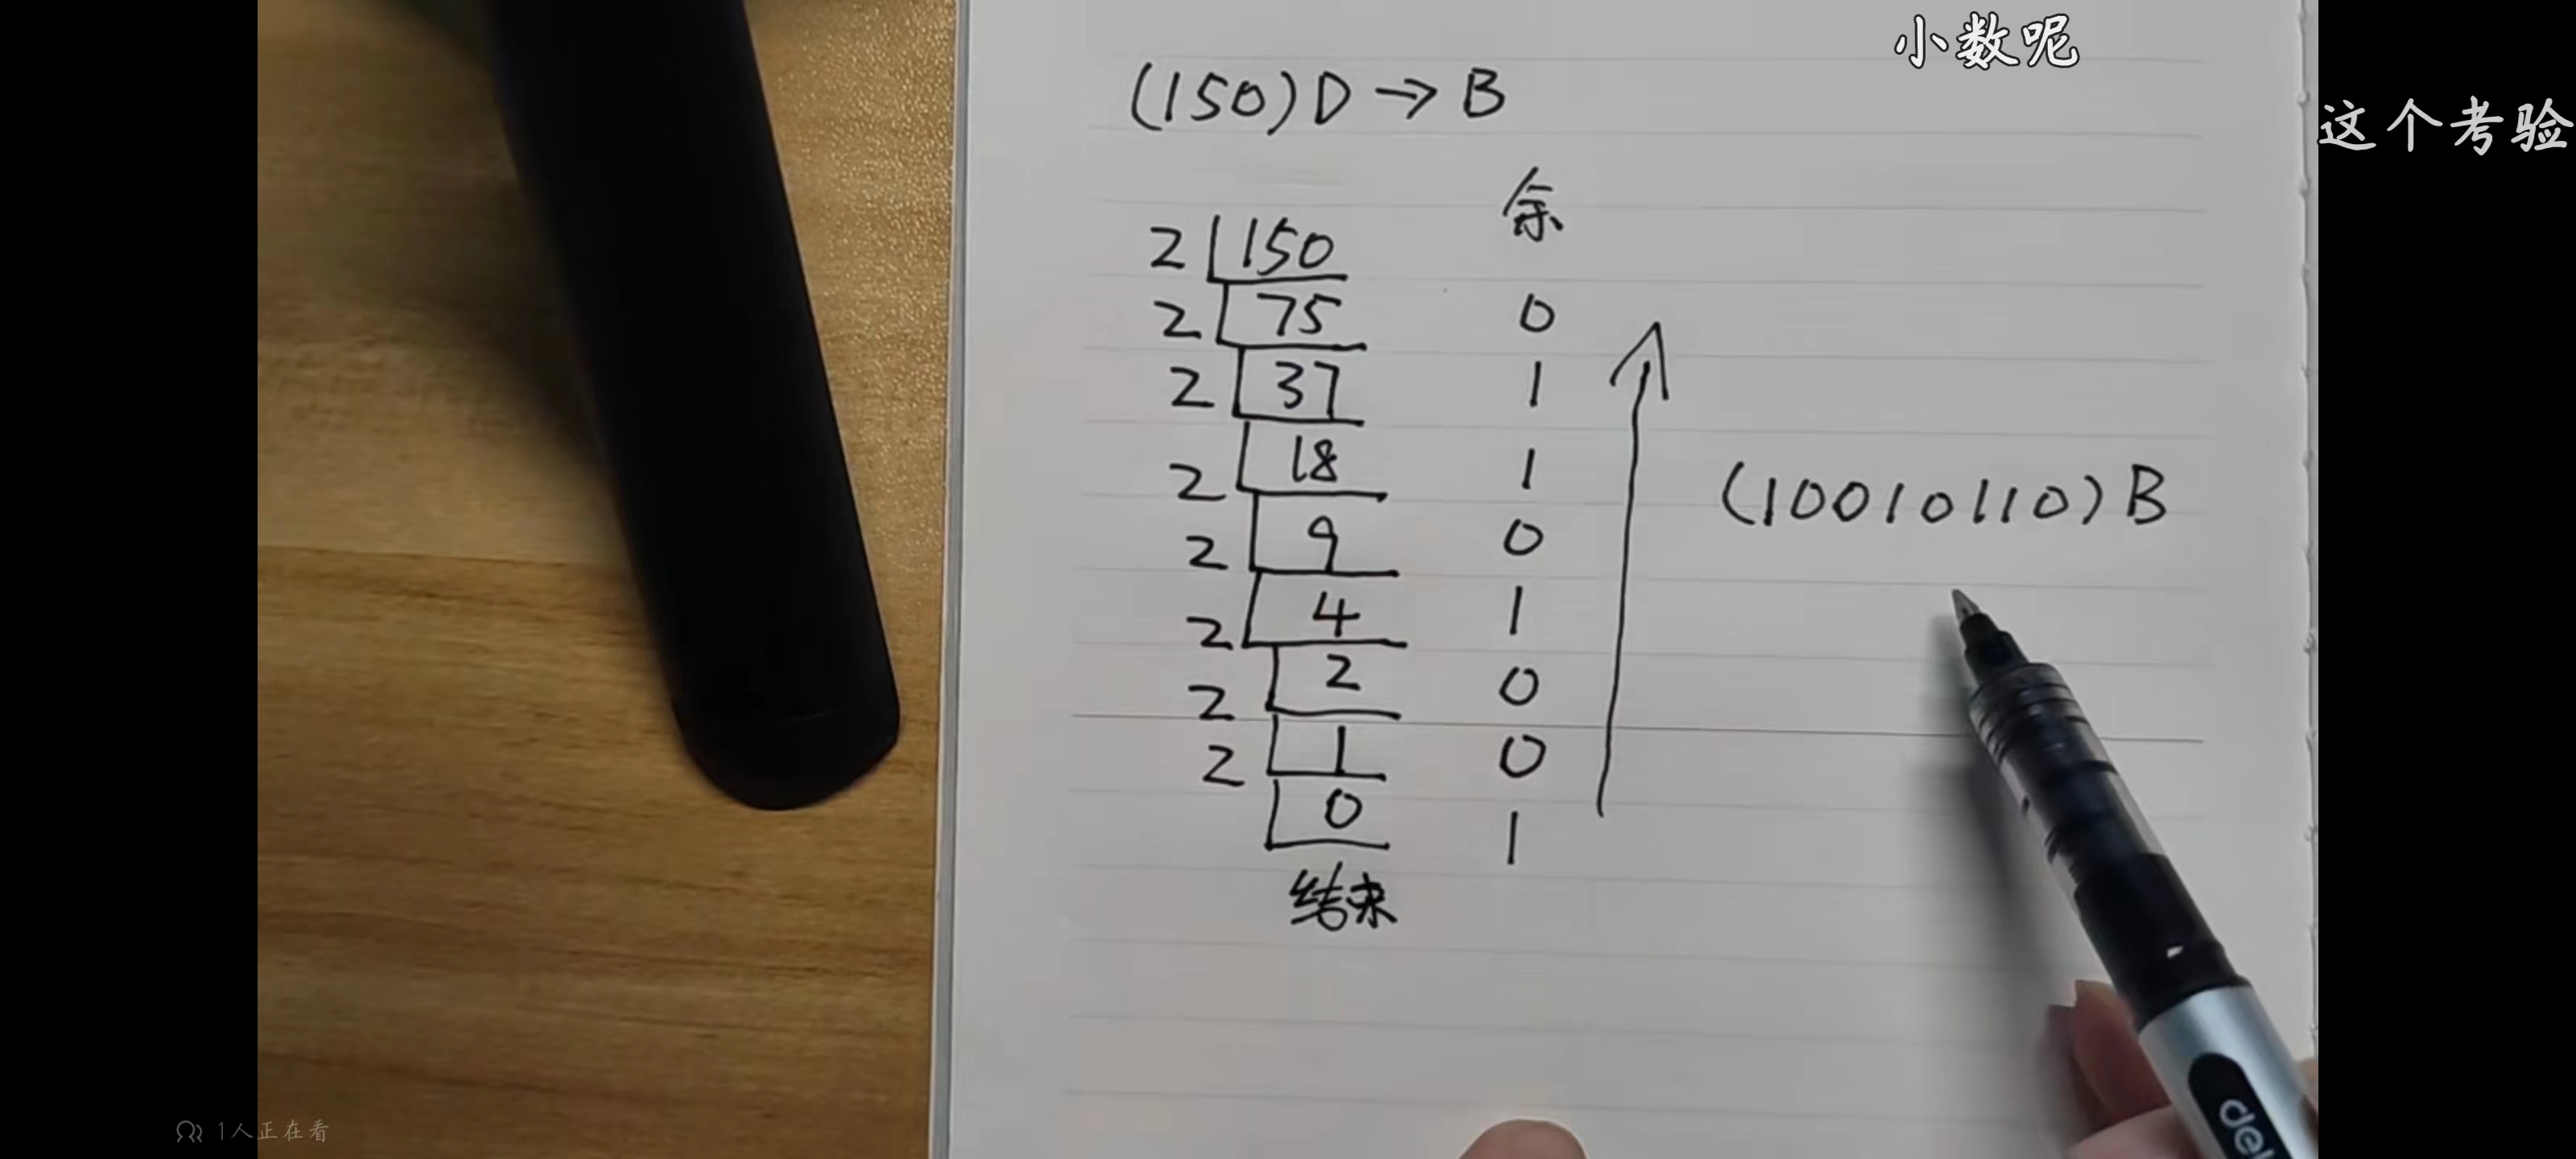 小数呢
这个考验
(150)D→B
余
2 150
2 75 0
2 37 1
2 18 1
2 9 0
2 4 1
2 2 0
2 1 0
0 1
结束
(10010110)B
1人正在看